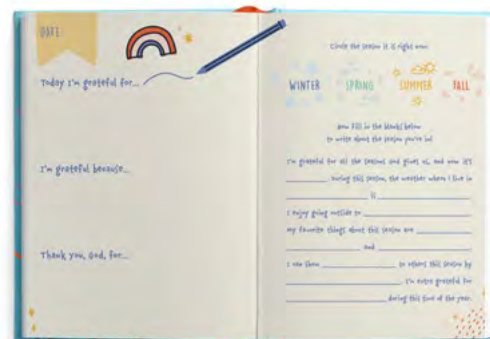 DATE
Today I'm grateful for...
I'm grateful because...
Thank you, God, for...
Circle the season it is right now.
WINTER SPRING SUMMER FALL
Now fill in the blanks below
to write about the season you're in!
I'm grateful for all the seasons God gives us, and now it's
. During this season, the weather where I live in
is
I enjoy going outside to
My favorite things about this season are
and
I can show to others this season by
. I'm extra grateful for
during this time of the year.